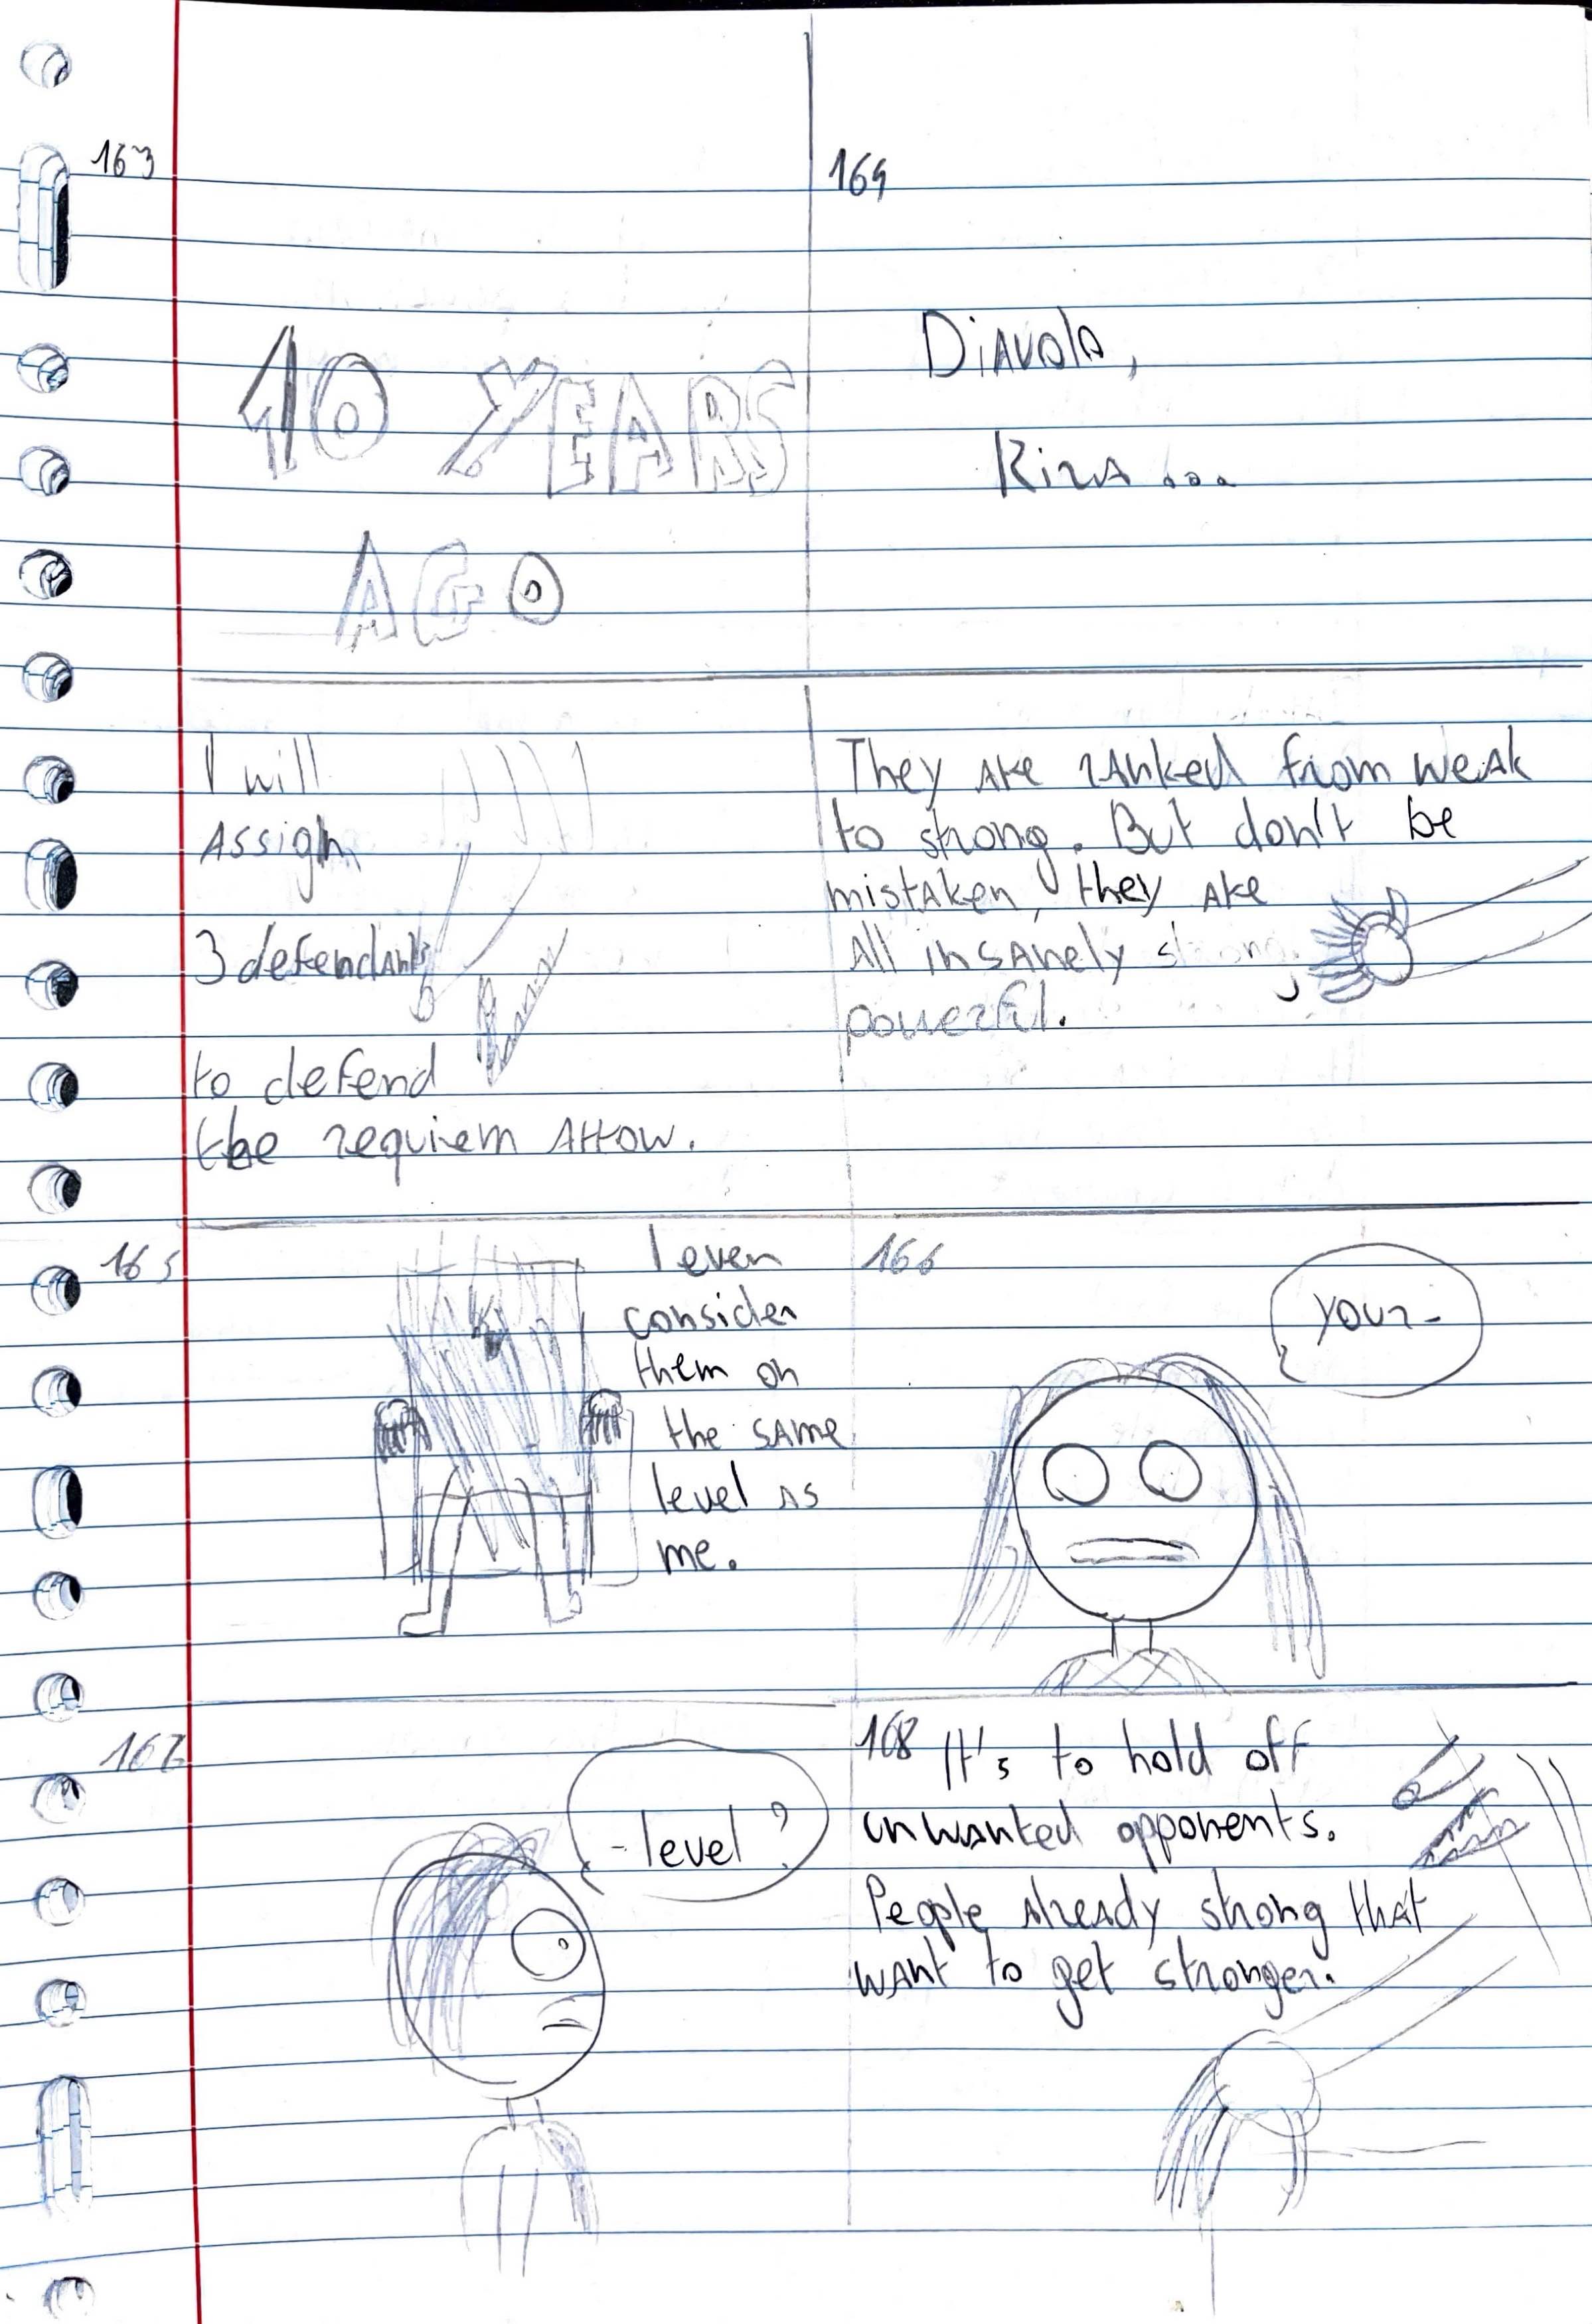 163
10 YEARS
AGO
164
Diavolo,
Kira...
I will
assign
3 defendants
to defend
the requiem arrow.
They are ranked from weak
to strong. But don't be
mistaken, they are
all insanely strong,
powerful.
165
I even
consider
them on
the same
level as
me.
166
your-
167
-level?
168
It's to hold off
unwanted opponents.
People already strong that
want to get stronger.